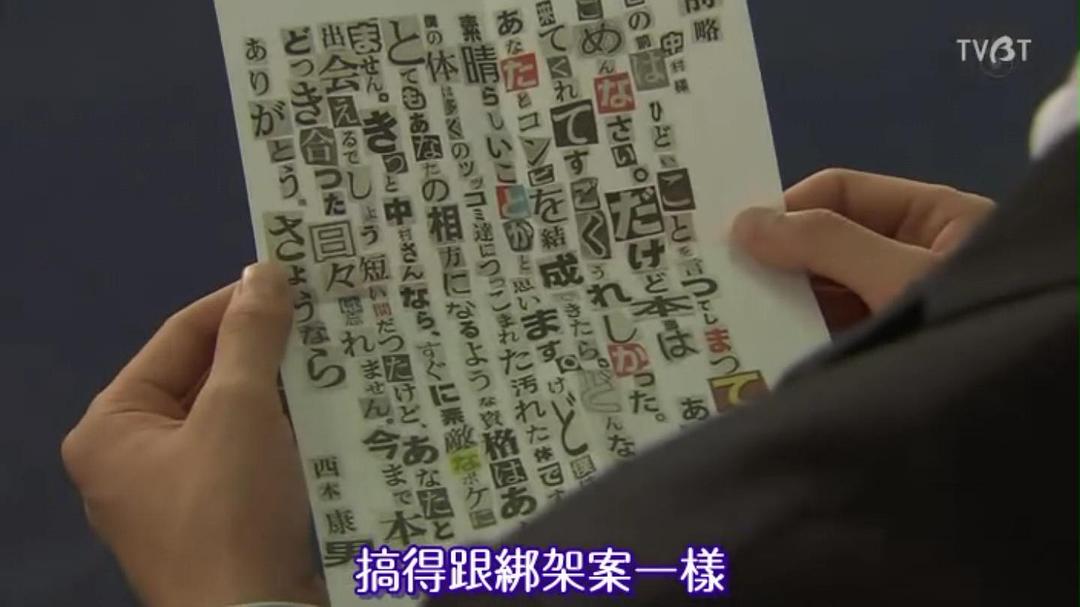 TVBT
前略
中村様
この前はひどいことを言ってしまって
ごめんなさい。だけど本当はあ
来てくれてすごくうれしかった。
あなたとコンビを結成できたら。どんな
素晴らしいことかと思います。けど僕
僕の体は多くのツッコミ達につっこまれた汚れた体です
とてもあなたの相方になるような資格はあ
ません。きっと中村さんなら、すぐに素敵なボケに
出会えるでしょう短い間だったけど、あなたと
どつき合った日々は忘れません。今まで本
ありがとう。さようなら
西木康男
搞得跟綁架案一樣